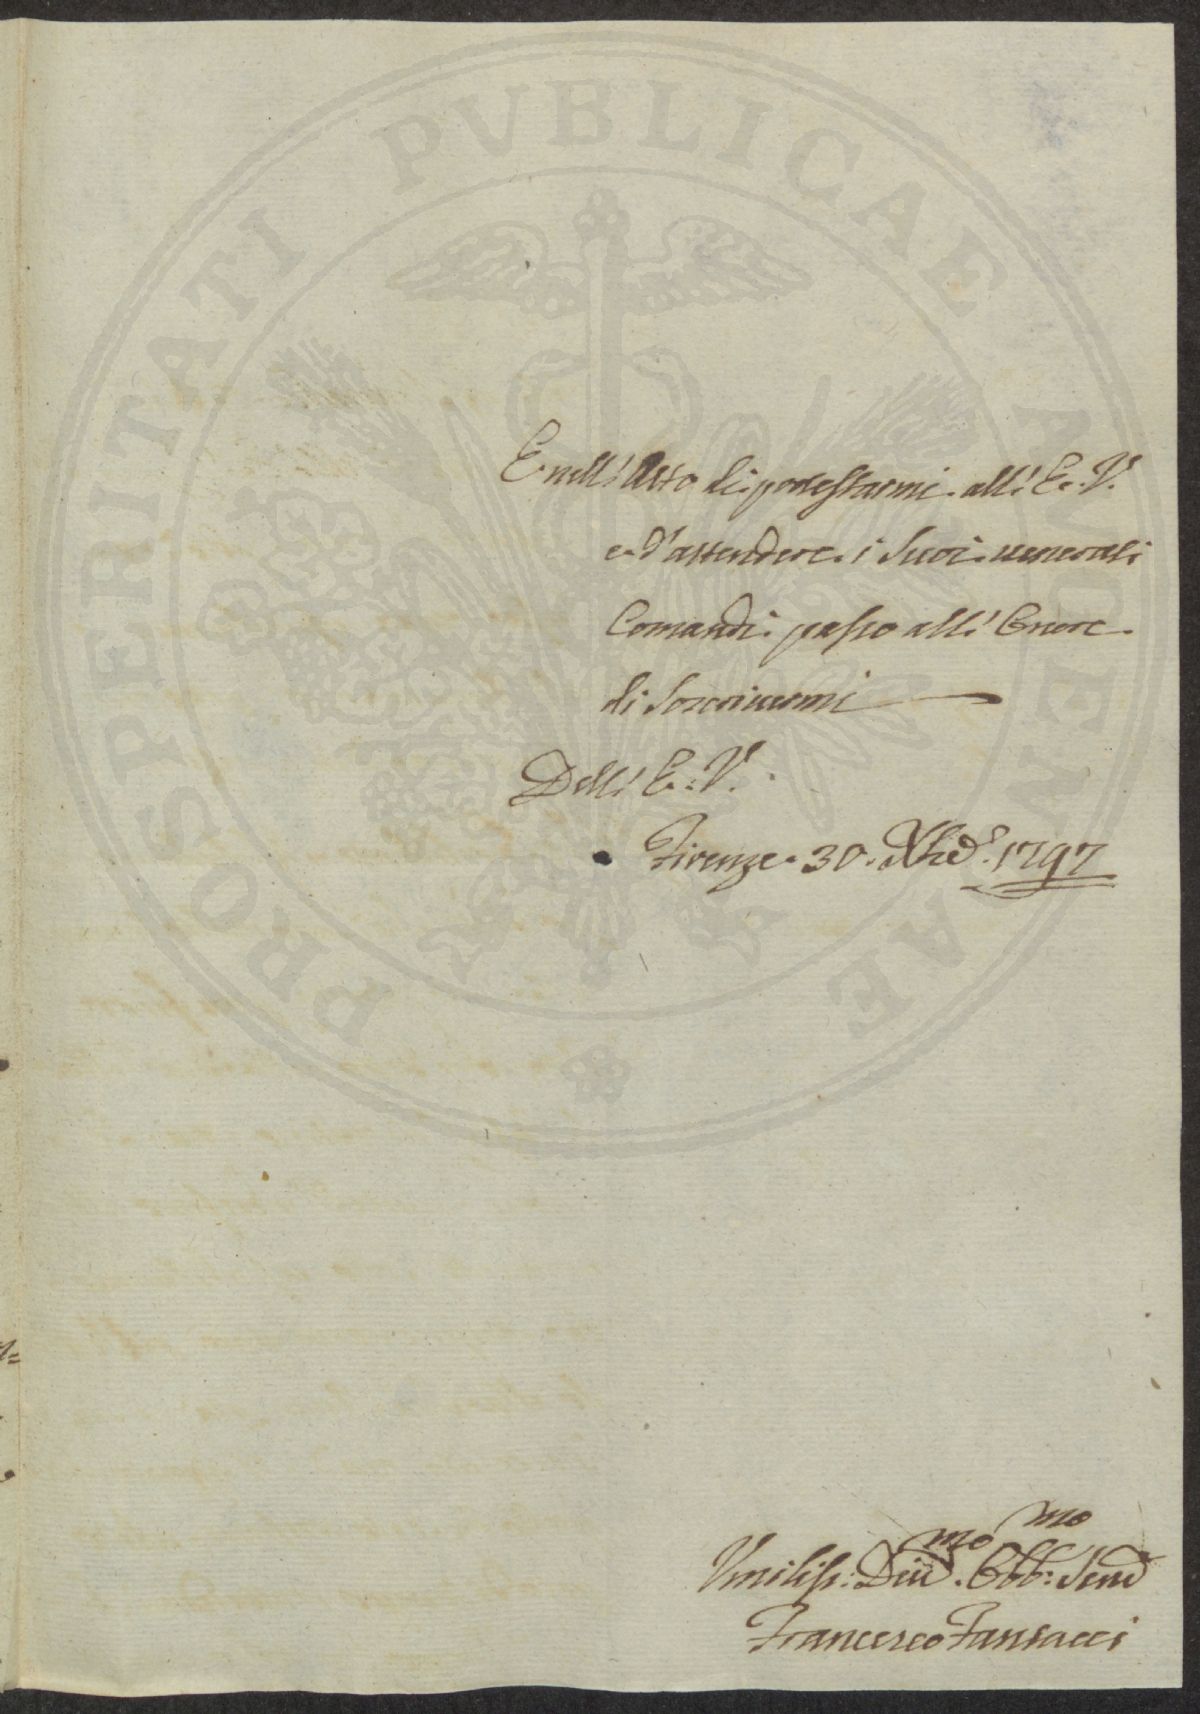 PROSPERITATI PVBLICAE AVGENDAE
E nell'Atto di protestarmi all'E. V.
e d'attendere i Suoi venerati
Comandi passo all'Onore
di Soscrivermi
Dell'E: V.
Firenze 30. Xbre 1797
mo mo
Vmiliss: Deu . Obb: Serv
Francesco Fantacci